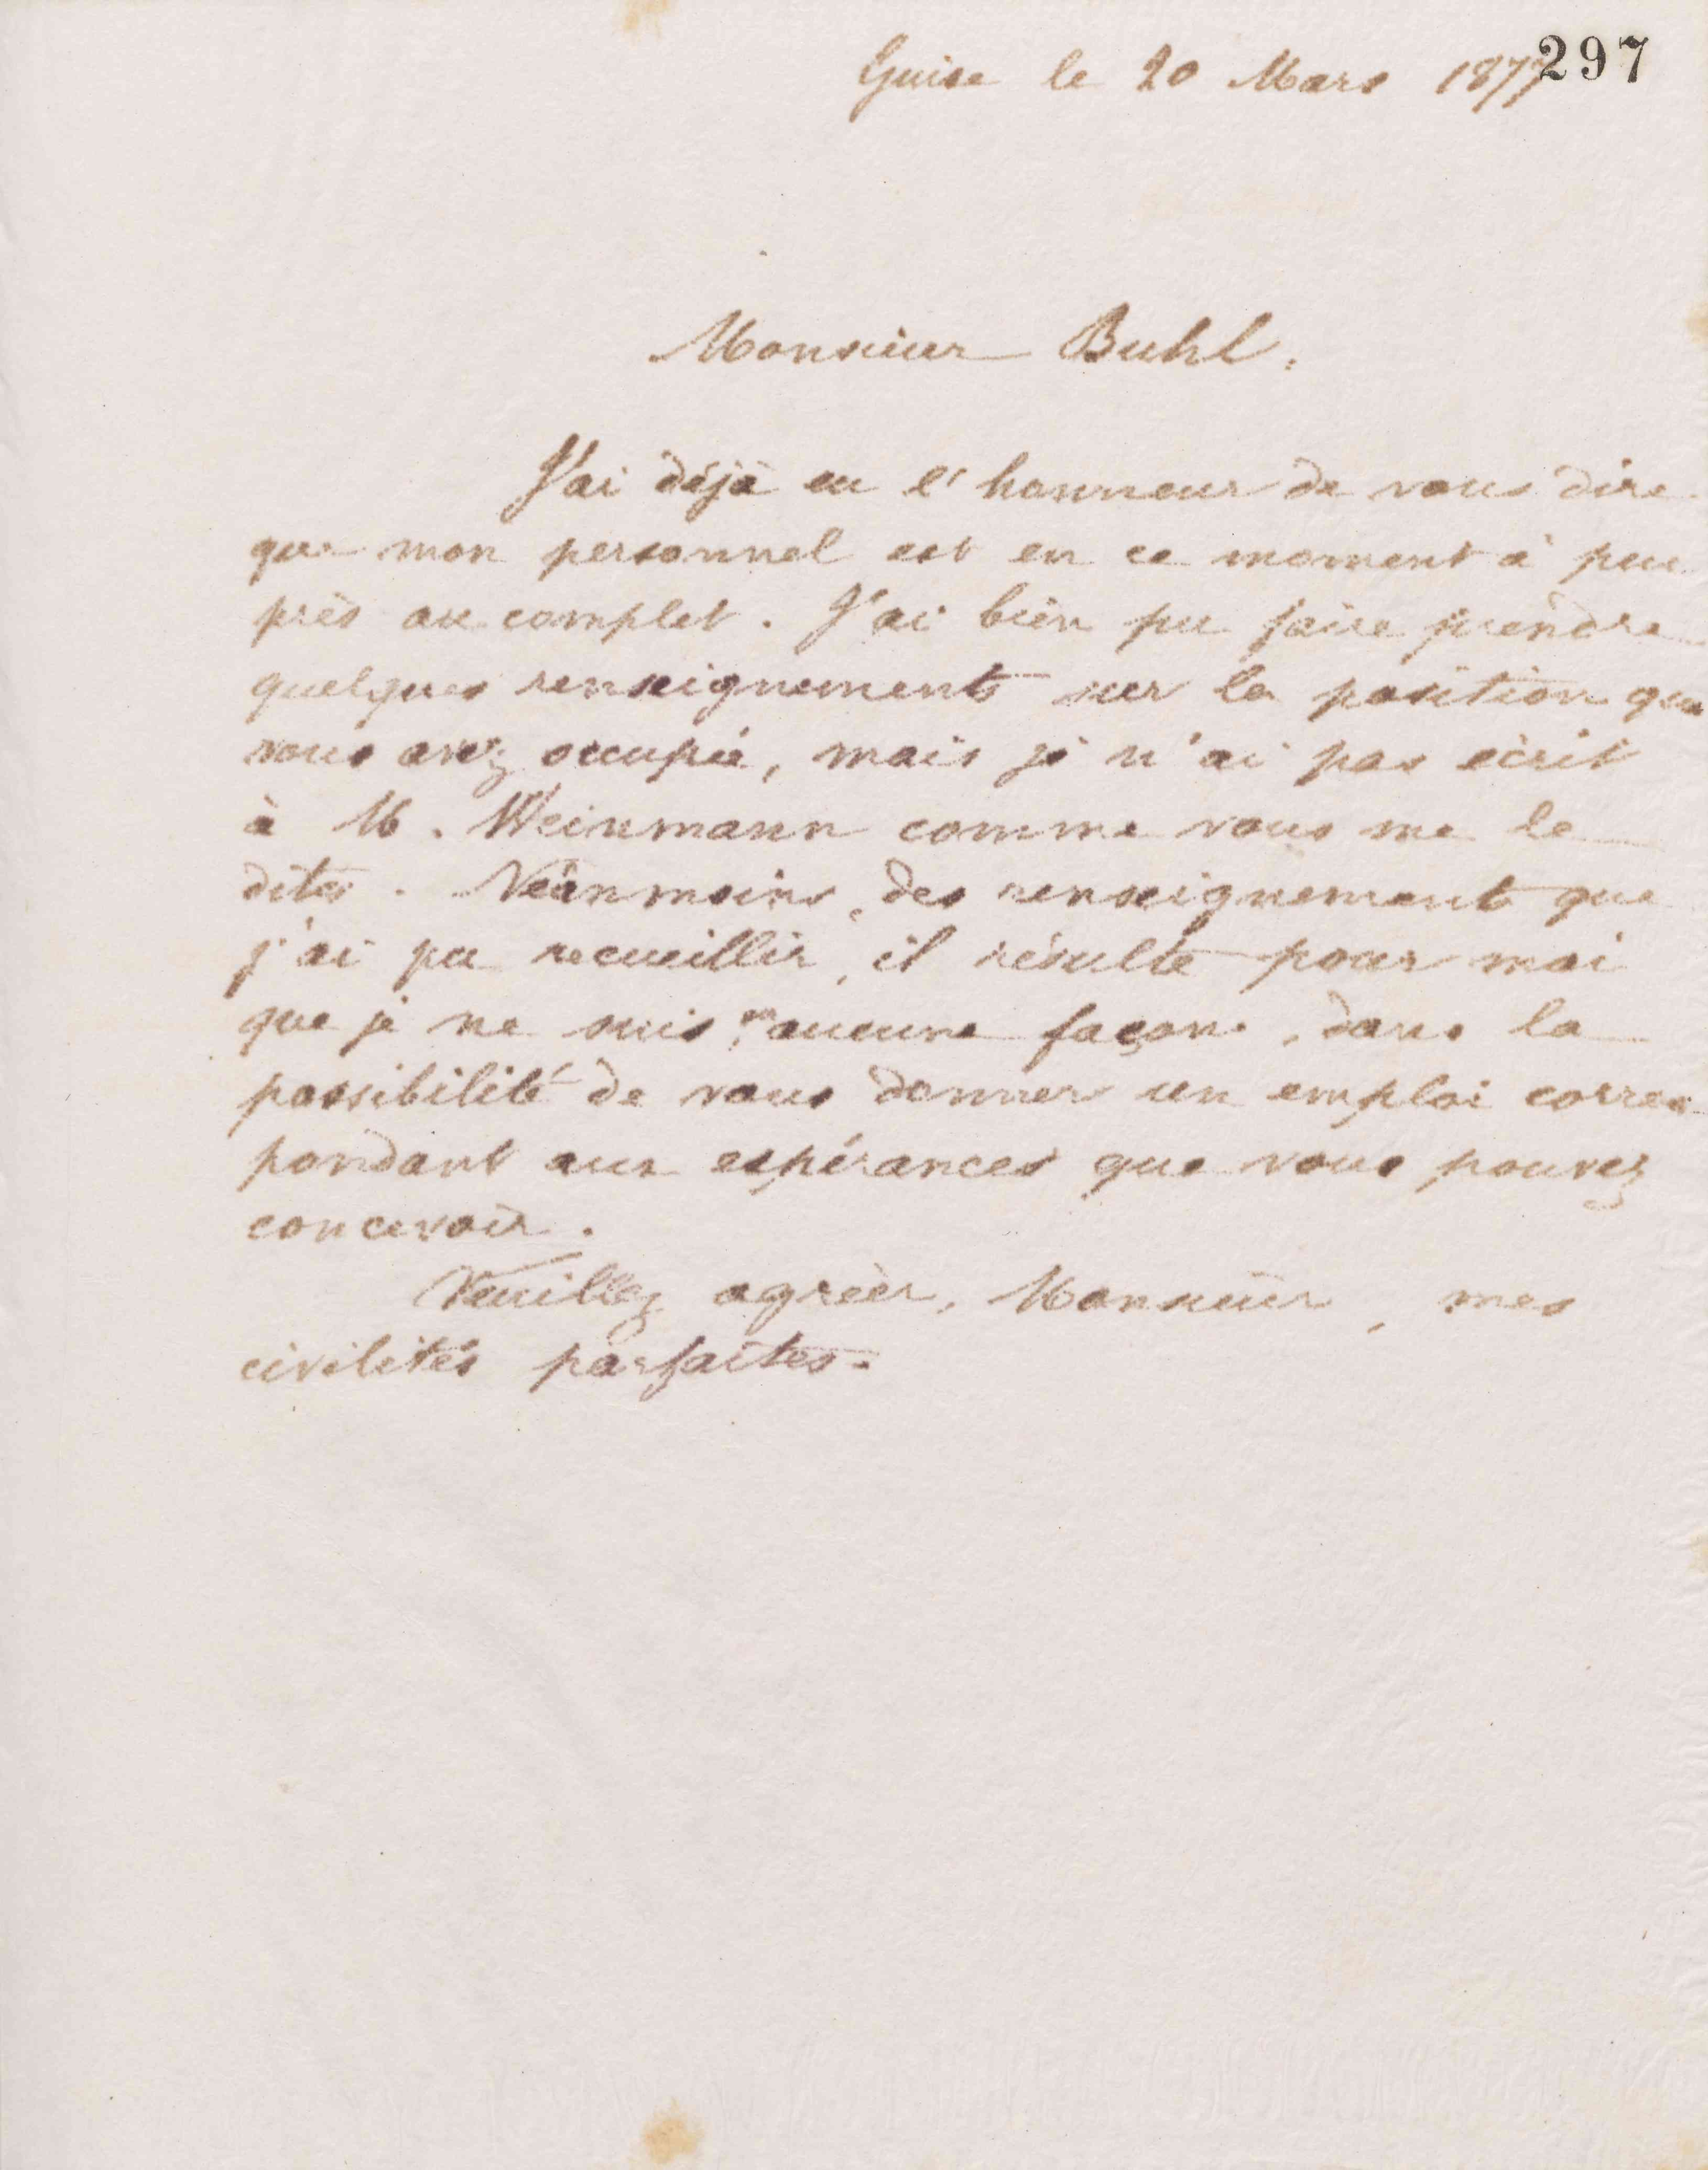 297
Guise le 20 Mars 1877
Monsieur Buhl,
J'ai déjà eu l'honneur de vous dire
que mon personnel est en ce moment à peu
près au complet. J'ai bien pu faire prendre
quelques renseignements sur la position que
vous avez occupée, mais je n'ai pas écrit
à M. Weinmann comme vous me le
dites. Néanmoins, des renseignements que
j'ai pu recueillir, il résulte pour moi
que je ne suis, en aucune façon, dans la
possibilité de vous donner un emploi corres-
pondant aux espérances que vous pouvez
concevoir.
Veuillez agréer, Monsieur, mes
civilités parfaites.